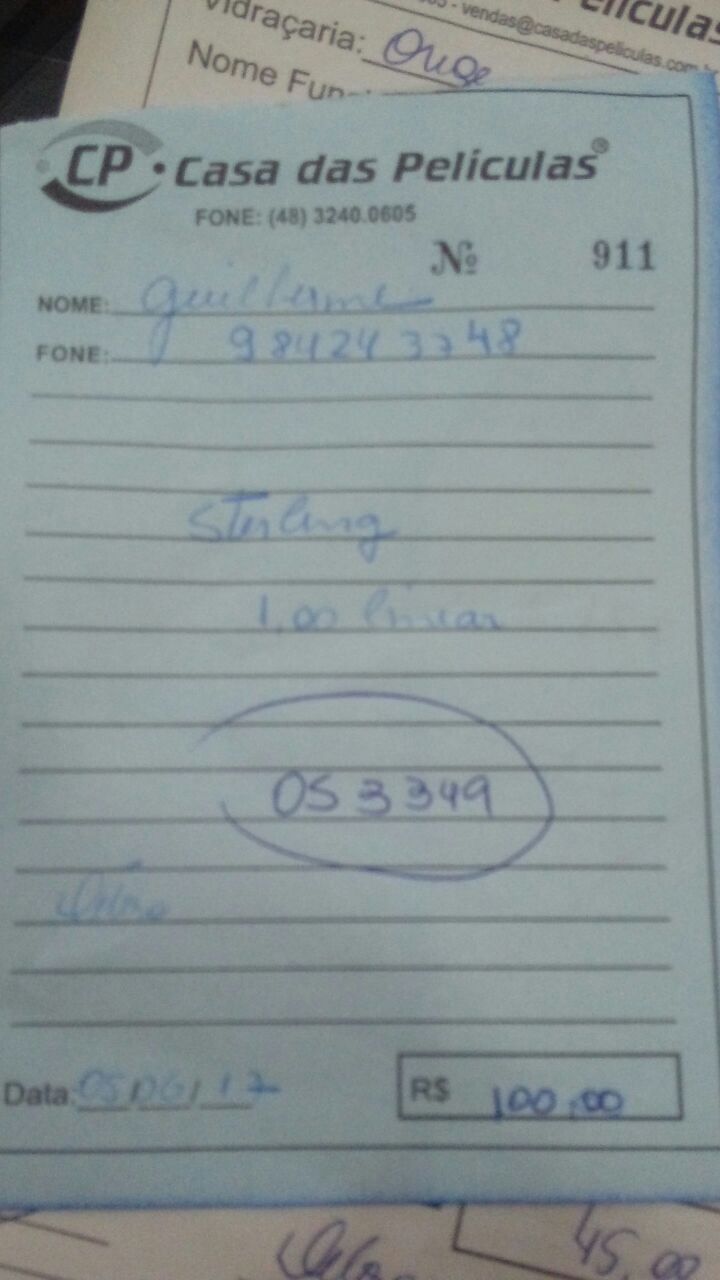 Películas
- vendas@casadaspeliculas.com
Vidraçaria:
Nome Fun
CP • Casa das Películas®
FONE: (48) 3240.0605
Nº 911
NOME: Guilherme
FONE: 984243748
Sterling
1,00 linear
053349
Data 05/06/17
R$ 100,00
45,00